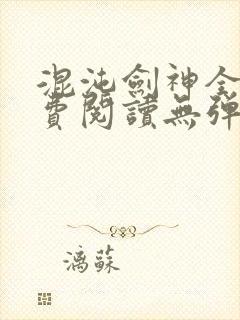 混沌劍神全
費閱讀無彈
漓蘇